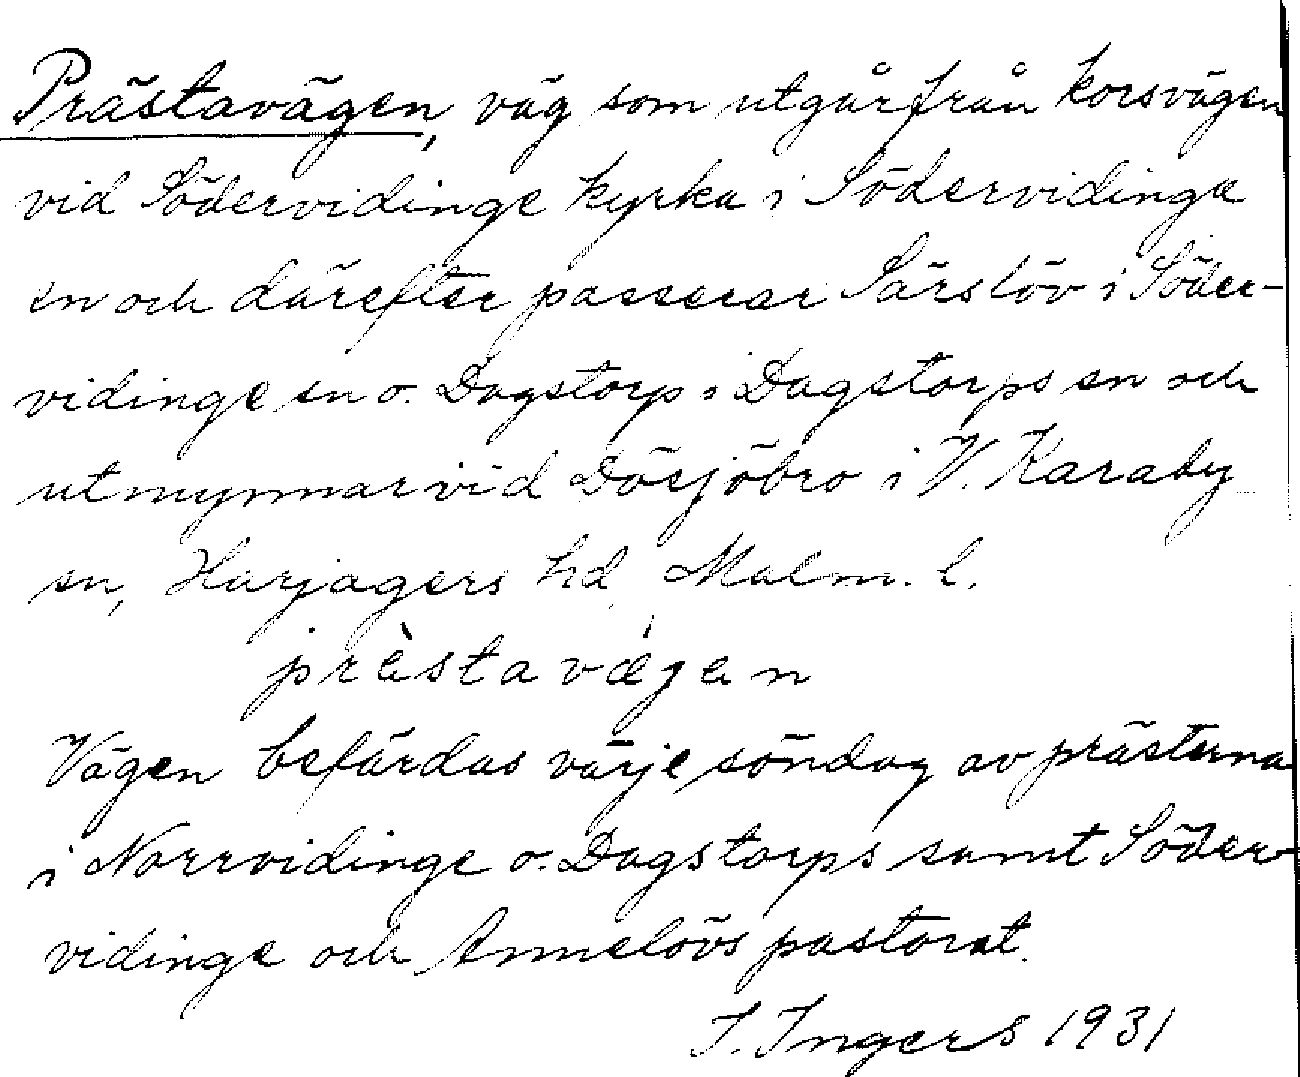 Prästavägen, väg som utgår från korsvägen
vid Södervidinge kyrka i Södervidinge
sn och därefter passerar Särslöv i Söder-
vidinge sn o. Dagstorp i Dagstorps sn och
utmynnar vid Dösjöbro i V. Karaby
sn, Harjagers hd, Malm. l.
prὲstavǽgen
Vägen befärdas varje söndag av prästerna
i Norrvidinge o. Dagstorps samt Söder-
vidinge och Annelövs pastorat.
I. Ingers 1931